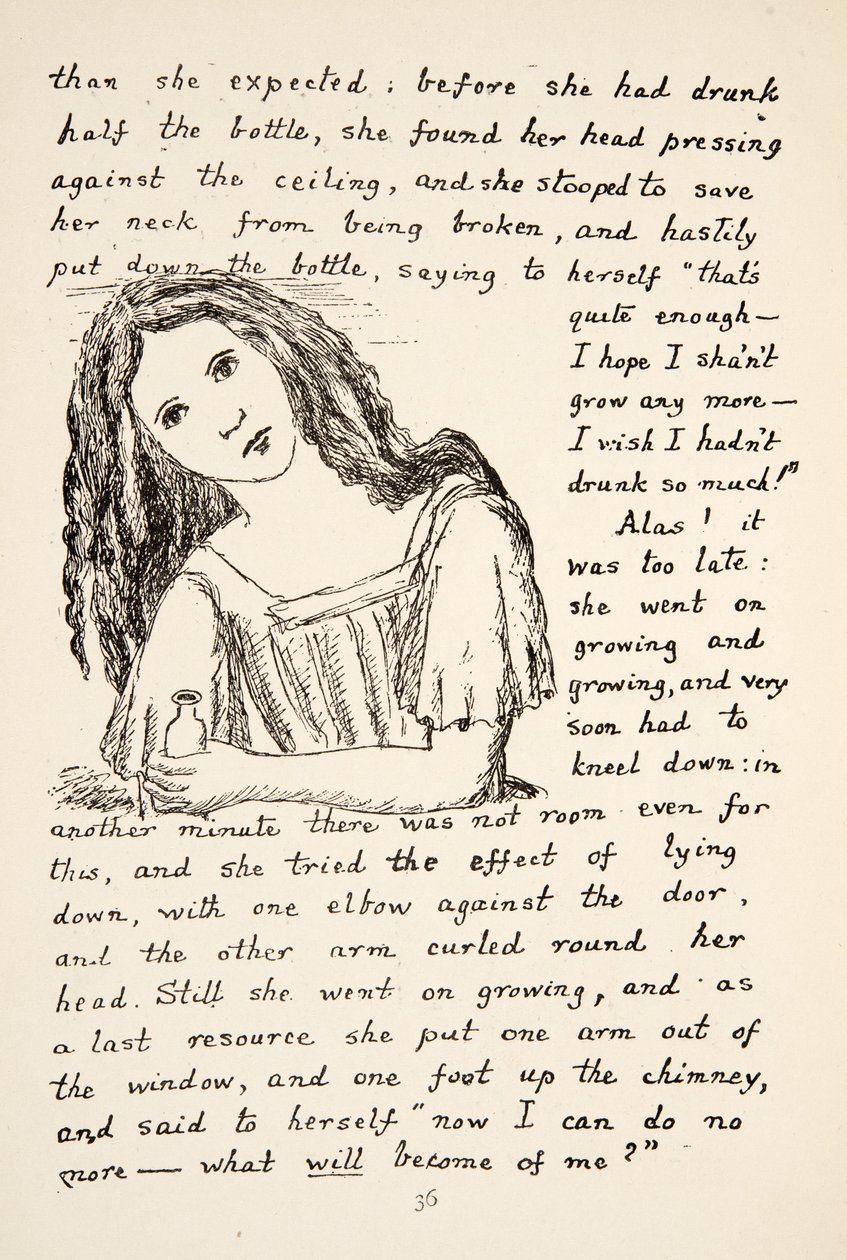 than she expected : before she had drunk
half the bottle, she found her head pressing
against the ceiling, and she stooped to save
her neck from being broken, and hastily
put down the bottle, saying to herself "that's
quite enough—
I hope I sha'n't
grow any more—
I wish I hadn't
drunk so much!"
Alas ! it
was too late :
she went on
growing and
growing, and very
soon had to
kneel down : in
another minute there was not room even for
this, and she tried the effect of lying
down, with one elbow against the door,
and the other arm curled round her
head. Still she went on growing, and as
a last resource she put one arm out of
the window, and one foot up the chimney,
and said to herself "now I can do no
more — what will become of me?"
36